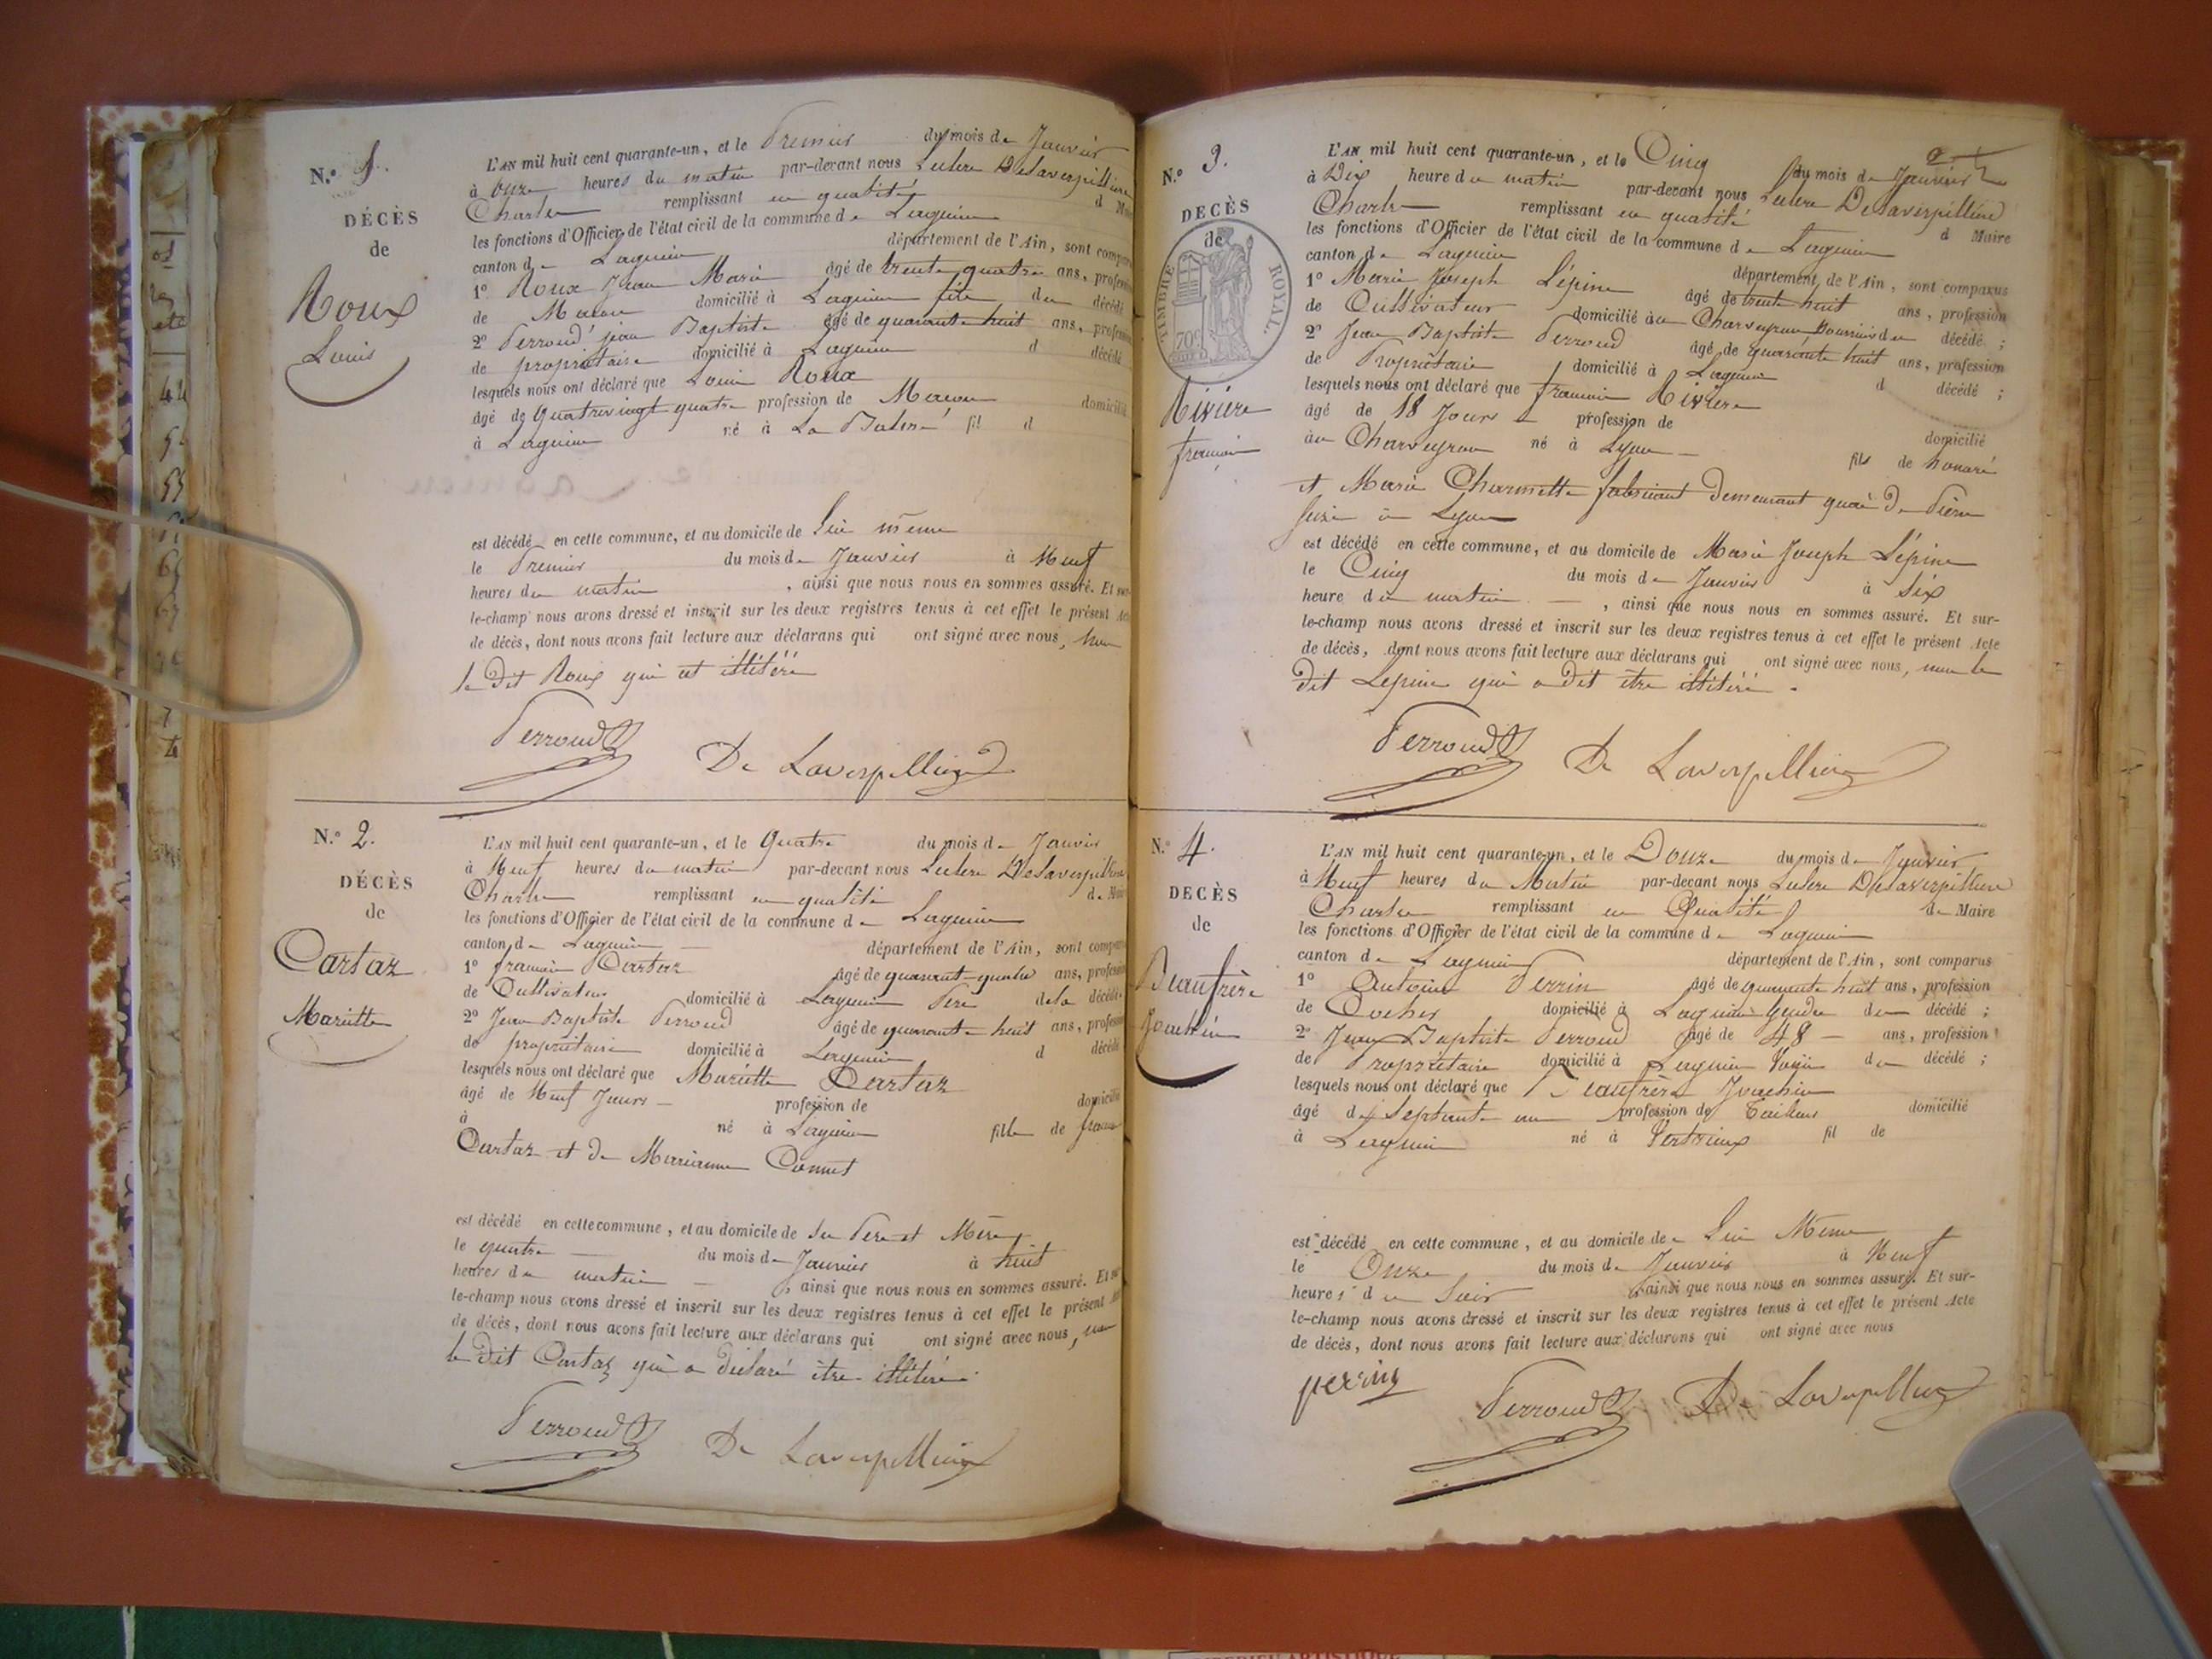 N.º 1.
DÉCÈS
de
Roux
Louis
L'AN mil huit cent quarante-un, et le Premier du mois de Janvier
à onze heures du matin par-devant nous Leclerc Delaverpillière
Charles remplissant en qualité d Maire
les fonctions d'Officier de l'état civil de la commune de Lagnieu
canton de Lagnieu département de l'Ain, sont comparus
1º Roux Jean Marie âgé de trente quatre ans, profession
de Macon domicilié à Lagnieu fils du décédé
2º Perroud jean Baptiste âgé de quarante huit ans, profession
de propriétaire domicilié à Lagnieu d décédé
lesquels nous ont déclaré que Louis Roux
âgé de quatrevingt quatre profession de Macon domicilié
à Lagnieu né à La Balme fil d
est décédé en cette commune, et au domicile de lui même
le Premier du mois de Janvier à Neuf
heures du matin, ainsi que nous nous en sommes assuré. Et sur-
le-champ nous avons dressé et inscrit sur les deux registres tenus à cet effet le présent Acte
de décès, dont nous avons fait lecture aux déclarans qui ont signé avec nous, non
le dit Roux qui est illitéré
Perroud De Laverpillière
N.º 2.
DÉCÈS
de
Cartaz
Mariette
L'AN mil huit cent quarante-un, et le Quatre du mois de Janvier
à Neuf heures du matin par-devant nous Leclerc Delaverpillière
Charles remplissant en qualité de Maire
les fonctions d'Officier de l'état civil de la commune de Lagnieu
canton de Lagnieu département de l'Ain, sont comparus
1º françois Cartaz âgé de quarant-quatre ans, profession
de Cultivateur domicilié à Lagnieu Père dela décédé
2º Jean Baptiste Perroud âgé de quarante huit ans, profession
de propriétaire domicilié à Lagnieu d décédé
lesquels nous ont déclaré que Mariette Cartaz
âgé de Neuf Jours profession de domicilié
à né à Lagnieu fille de françois
Cartaz et de Marianne
est décédé en cette commune, et au domicile de Père et Mère
le quatre du mois de Janvier à huit
heures du matin, ainsi que nous nous en sommes assuré. Et sur-
le-champ nous avons dressé et inscrit sur les deux registres tenus à cet effet le présent Acte
de décès, dont nous avons fait lecture aux déclarans qui ont signé avec nous, non
le dit Cartaz qui a déclaré être illitéré.
Perroud De Laverpillière
N.º 3.
DÉCÈS
de
TIMBRE ROYAL
70c
Rivière
françois
L'AN mil huit cent quarante-un, et le Cinq du mois de Janvier
à Dix heure du matin par-devant nous Leclerc Delaverpillière
Charles remplissant en qualité d Maire
les fonctions d'Officier de l'état civil de la commune de Lagnieu
canton de Lagnieu département de l'Ain, sont comparus
1º Marie Joseph Lépine âgé de trente huit ans, profession
de Cultivateur domicilié au Charveyron du décédé ;
2º Jean Baptiste Perroud âgé de quarante huit ans, profession
de Propriétaire domicilié à Lagnieu d décédé ;
lesquels nous ont déclaré que françois Rivière
âgé de 18 Jours profession de domicilié
au Charveyron né à Lyon fils de honoré
et Marie Charmette fabricant demeurant quai de Pierre
Scize à Lyon
est décédé en cette commune, et au domicile de Marie Joseph Lépine
le Cinq du mois de Janvier à Six
heure du matin, ainsi que nous nous en sommes assuré. Et sur-
le-champ nous avons dressé et inscrit sur les deux registres tenus à cet effet le présent Acte
de décès, dont nous avons fait lecture aux déclarans qui ont signé avec nous, non le
dit Lepine qui a dit être illitéré.
Perroud De Laverpillière
N.º 4.
DÉCÈS
de
Beaufrère
Joachin
L'AN mil huit cent quarante-un, et le Douze du mois de Janvier
à Neuf heures du Matin par-devant nous Leclerc Delaverpillière
Charles remplissant en Qualité de Maire
les fonctions d'Officier de l'état civil de la commune de Lagnieu
canton de Lagnieu département de l'Ain, sont comparus
1º Antoine Perrin âgé de quarante huit ans, profession
de Cocher domicilié à Lagnieu Gendre du décédé ;
2º Jean Baptiste Perroud âgé de 48 ans, profession
de Propriétaire domicilié à Lagnieu Voisin du décédé ;
lesquels nous ont déclaré que Beaufrère Joachin
âgé de Septante un profession de Tailleur domicilié
à Lagnieu né à Vertrieux fil de
est décédé en cette commune, et au domicile de Lui Même
le Onze du mois de Janvier à Neuf
heures du Soir ainsi que nous nous en sommes assuré. Et sur-
le-champ nous avons dressé et inscrit sur les deux registres tenus à cet effet le présent Acte
de décès, dont nous avons fait lecture aux déclarans qui ont signé avec nous
perrin Perroud De Laverpillière